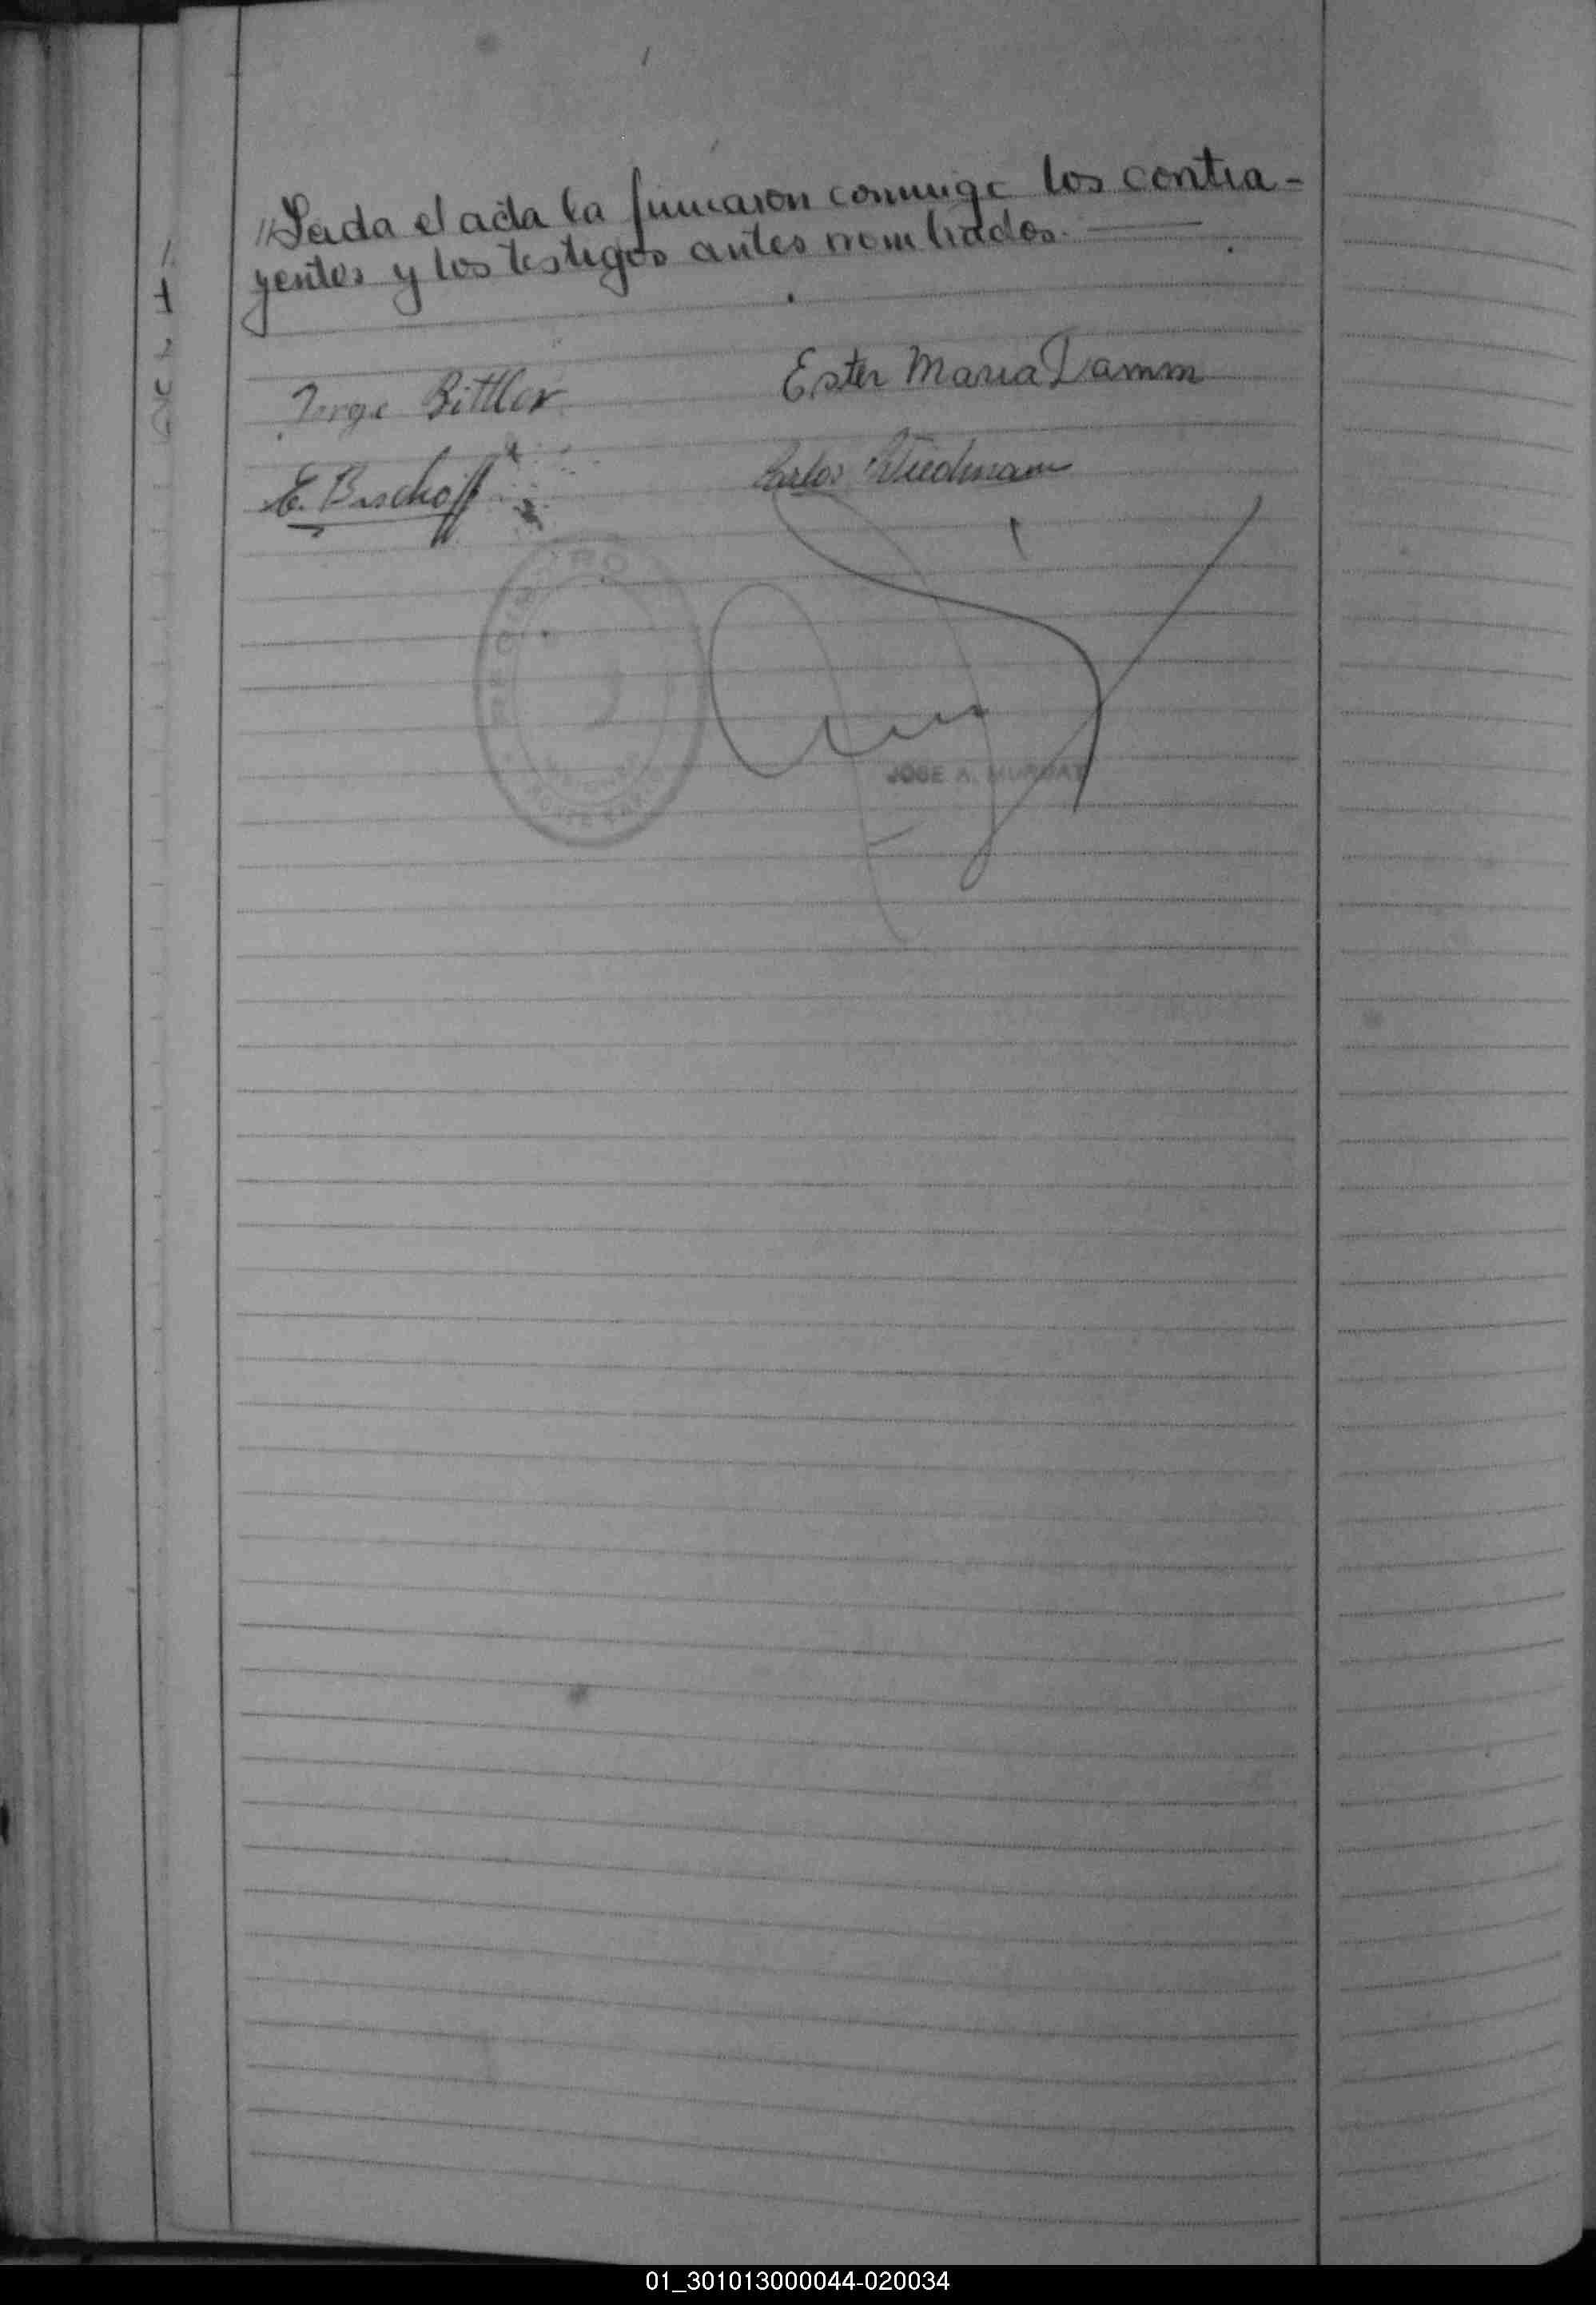 "Leida el acta la firmaron conmigo los contra-
yentes y los testigos antes nombrados.
Jorge Bittler
Ester Maria Damm
E. Bischoff
Carlos Wiedmann
REGISTRO
JOSE A.
01_301013000044-020034